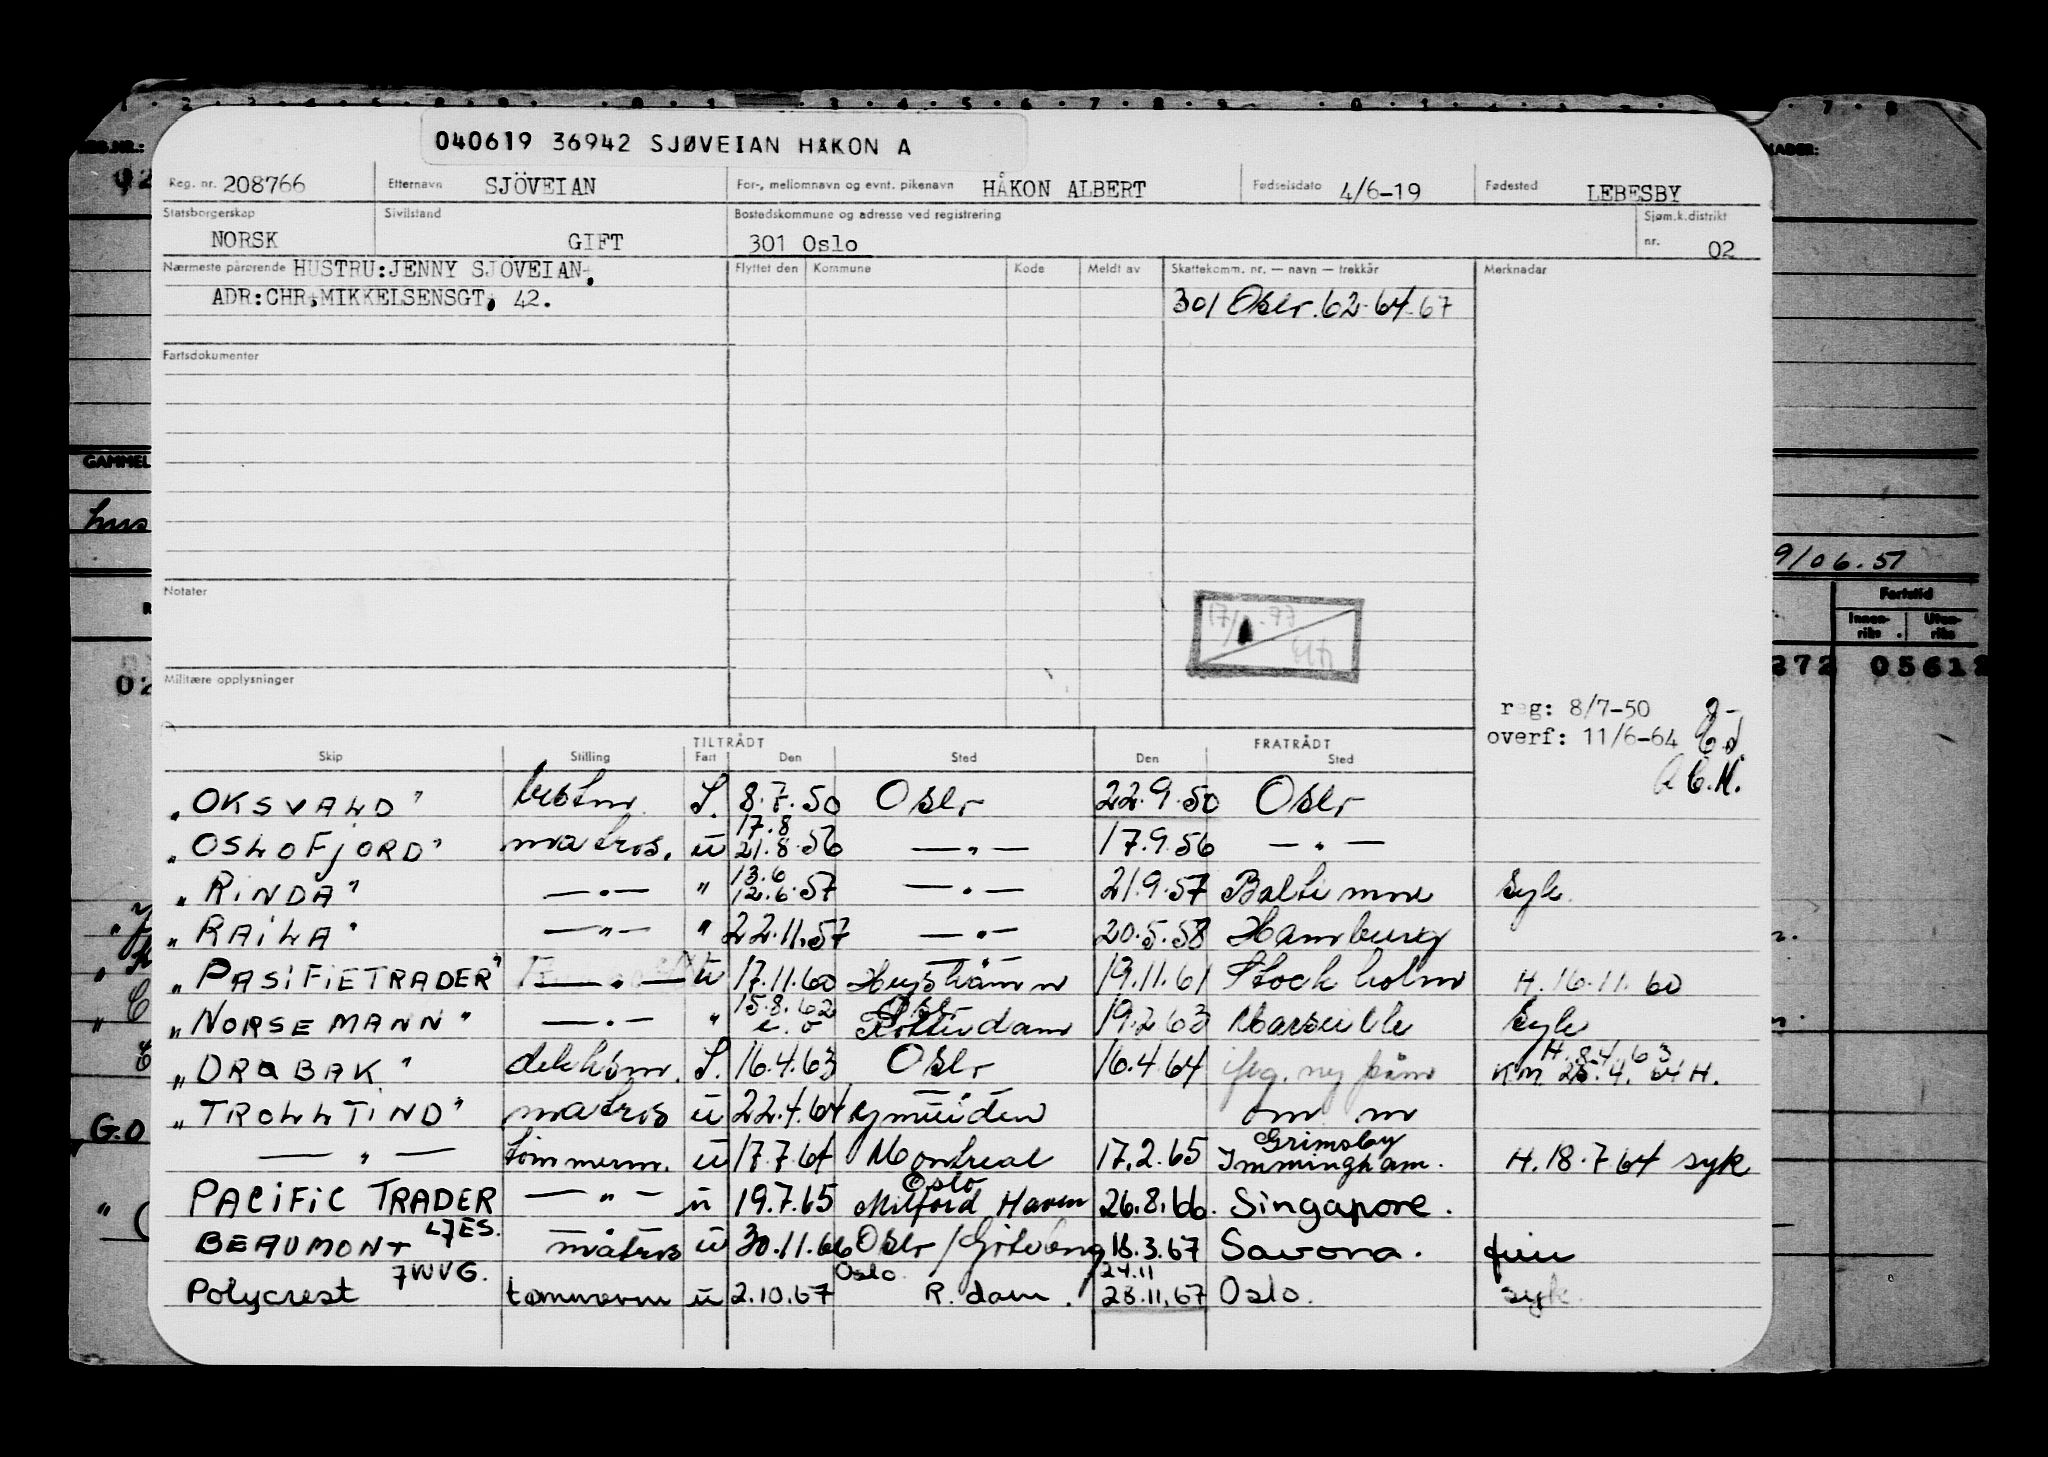 040619 36942 SJØVEIAN HÅKON A
Reg. nr. 208766 Etternavn SJÖVEIAN For-, mellomnavn og evnt. pikenavn HÅKON ALBERT Fødselsdato 4/6-19 Fødested LEBESBY
Statsborgerskap NORSK Sivilstand GIFT Bostedskommune og adresse ved registrering 301 Oslo Sjøm.k.distrikt nr. 02
Nærmeste pårørende HUSTRU:JENNY SJÖVEIAN, Flyttet den Kommune Kode Meldt av Skattekomm. nr. — navn — trekkår Merknader
ADR:CHR,MIKKELSENSGT, 42. 301 Oslo. 62-64-67
Fartsdokumenter
Notater
Militære opplysninger
reg: 8/7-50
overf: 11/6-64
TILTRÅDT FRATRÅDT
Skip Stilling Fart Den Sted Den Sted
"OKSVALD" 8.7.50 Oslo 22.9.50 Oslo
"OSLOFJORD" matros. u 17.8 21.8.56 —"— 17.9.56 —"—
"RINDA" —"— " 13.6 12.6.57 —"— 21.9.57 Baltimore Syk.
"RAILA" —"— " 22.11.57 —"— 20.5.58 Hamburg
"PASIFIETRADER" —"— u 17.11.60 19.11.61 Stockholm H.16.11.60
"NORSEMANN" —"— " 15.8.62 Oslo Rotterdam 19.2.63 Marseille Syk
"DRØBAK" 16.4.63 Oslo 16.4.64 H.8.4.63
"TROLLTIND" matros u 22.4.64 Ymuiden om m
—"— tømmerm. u 17.7.64 Montreal 17.2.65 Grimsby Immingham. H.18.7 64 syk
PACIFIC TRADER —"— u 19.7.65 Oslo Milford Haven 26.8.66. Singapore.
BEAUMONT LJES. matros u 30.11.66 Oslo/Göteborg 18.3.67 Savona.
Polycrest 7WVG. tømmerm u 2.10.67 Oslo R.dam. 24.11 28.11.67 Oslo. syk.
GAMMEL
9/06.51
Fartstid
Innenriks Utenriks
272 05612